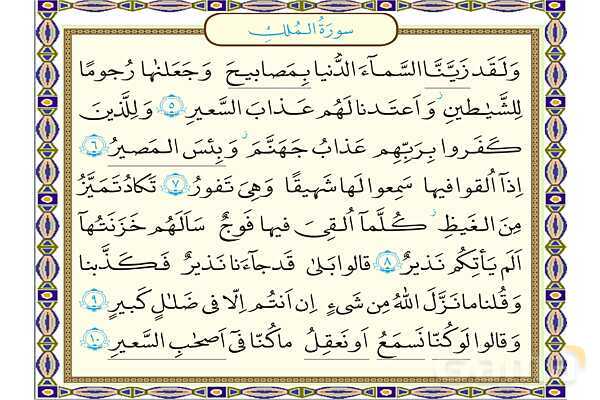 سورة الملك
وَلَقَد زَيَّنَّا السَّمـآءَ الدُّنيا بِمَصابيحَ وَ جَعَلنٰها رُجومًا
لِلشَّيٰطينِ وَ اَعتَدنا لَهُم عَذابَ السَّعيرِ ٥ وَ لِلَّذينَ
كَفَروا بِرَبِّهِم عَذابُ جَهَنَّمَ وَ بِئسَ المَصيرُ ٦
اِذآ اُلقوا فيها سَمِعوا لَها شَهيقًا وَ هِىَ تَفورُ ٧ تَكادُ تَمَيَّزُ
مِنَ الغَيظِ كُلَّمآ اُلقِىَ فيها فَوجٌ سَاَلَهُم خَزَنَتُهآ
اَلَم يَأتِكُم نَذيرٌ ٨ قالوا بَلىٰ قَد جآءَنا نَذيرٌ فَكَذَّبنا
وَ قُلنا ما نَزَّلَ اللّٰهُ مِن شَىءٍ اِن اَنتُم اِلّا فى ضَلـٰلٍ كَبيرٍ ٩
وَ قالوا لَو كُنّا نَسمَعُ اَو نَعقِلُ ما كُنّا فىٓ اَصحـٰبِ السَّعيرِ ١٠